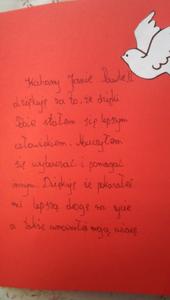 Kochany Janie Pawle II
dziękuję za to, że dzięki
Tobie stałem się lepszym
człowiekiem. Nauczyłem
się wybaczać i pomagać
innym. Dziękuję że pokazałeś
mi lepszą drogę na życie
a także umocniłeś moją wiarę.